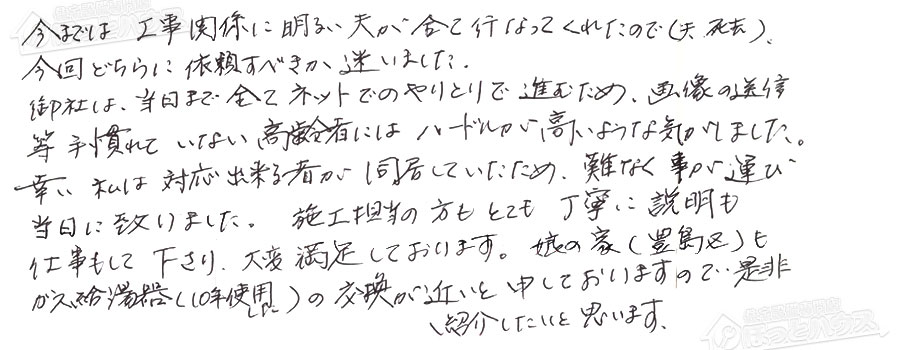 今までは 工事関係に明るい夫が全て行なってくれたので(夫 死去)、
今回どちらに依頼すべきか迷いました.
御社は、当日まで全てネットでのやりとりで進むため、画像の送信
等 手慣れて いない高齢者には ハードルが高いような気がしました。
幸い 私は 対応出来る者が 同居していたため、難なく事が運び
当日に致りました。 施工担当の方もとても 丁寧に説明も
仕事もして下さり、大変満足しております。娘の家(豊島区)も
ガス給湯器(10年使用した)の交換が近いと申しておりますので、是非
紹介したいと思います、